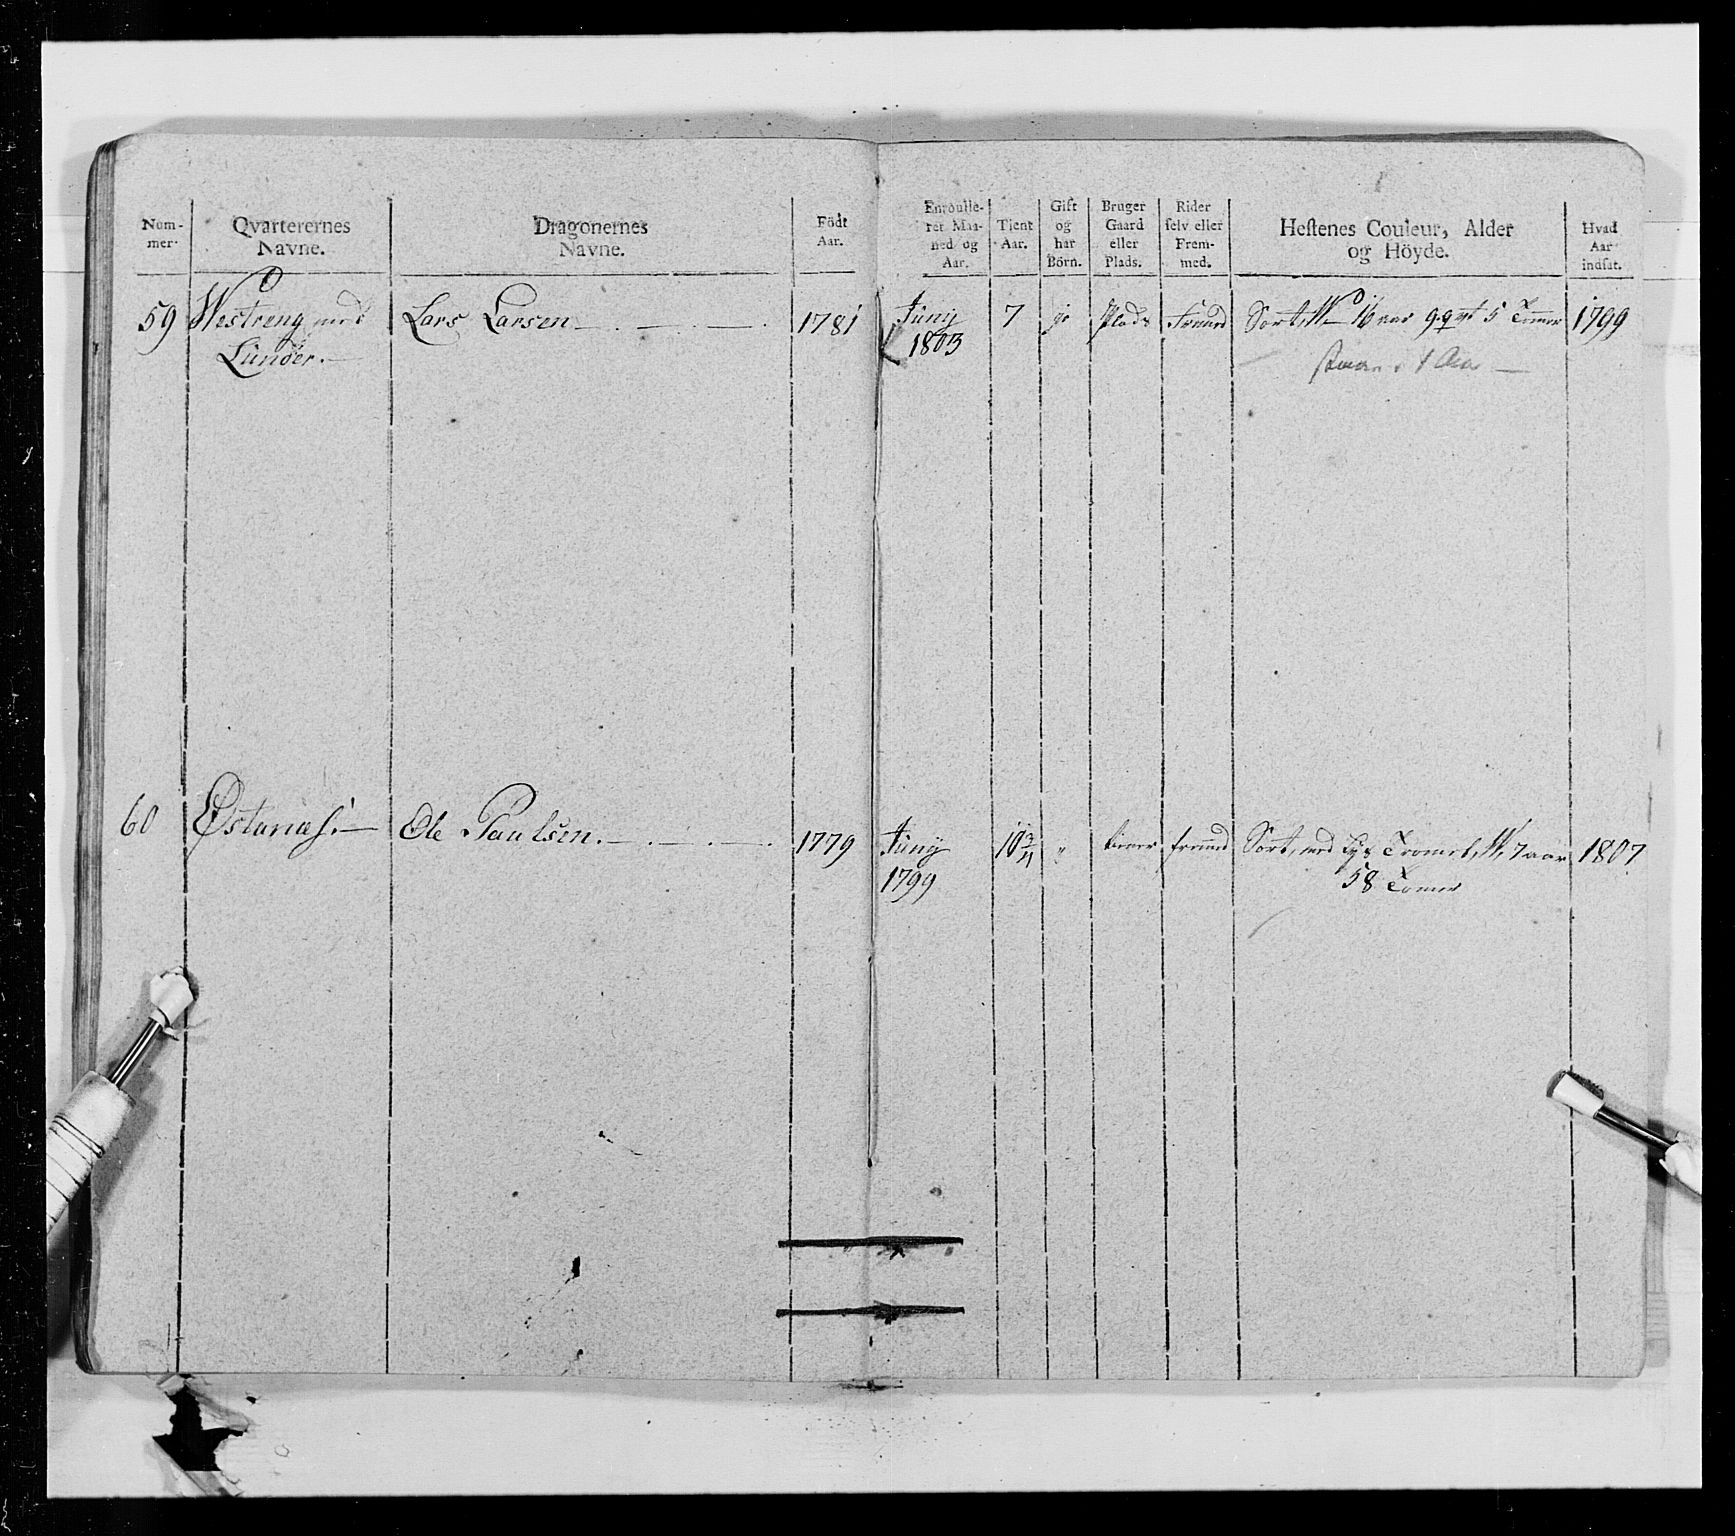 Num-
mer.
Qvarterernes
Navne.
Dragonernes
Navne.
Födt
Aar.
Enroulle-
ret Maa-
ned og
Aar.
Tient
Aar.
Gift
og
har
Börn.
Bruger
Gaard
eller
Plads.
Rider
selv eller
Frem-
med.
Hestenes Couleur, Alder
og Höyde.
Hvad
Aar
indsat.
59 Westreng med Lars Larsen 1781 Juny 7 Plads Fremd Sort 16 aar 5 Tommer 1799
Lunder. 1803
60 Østanæs. Ole Paulsen. 1779 Juny 10 " tiener fremd Sort, med 7 aar 1807
1799 58 Tommer